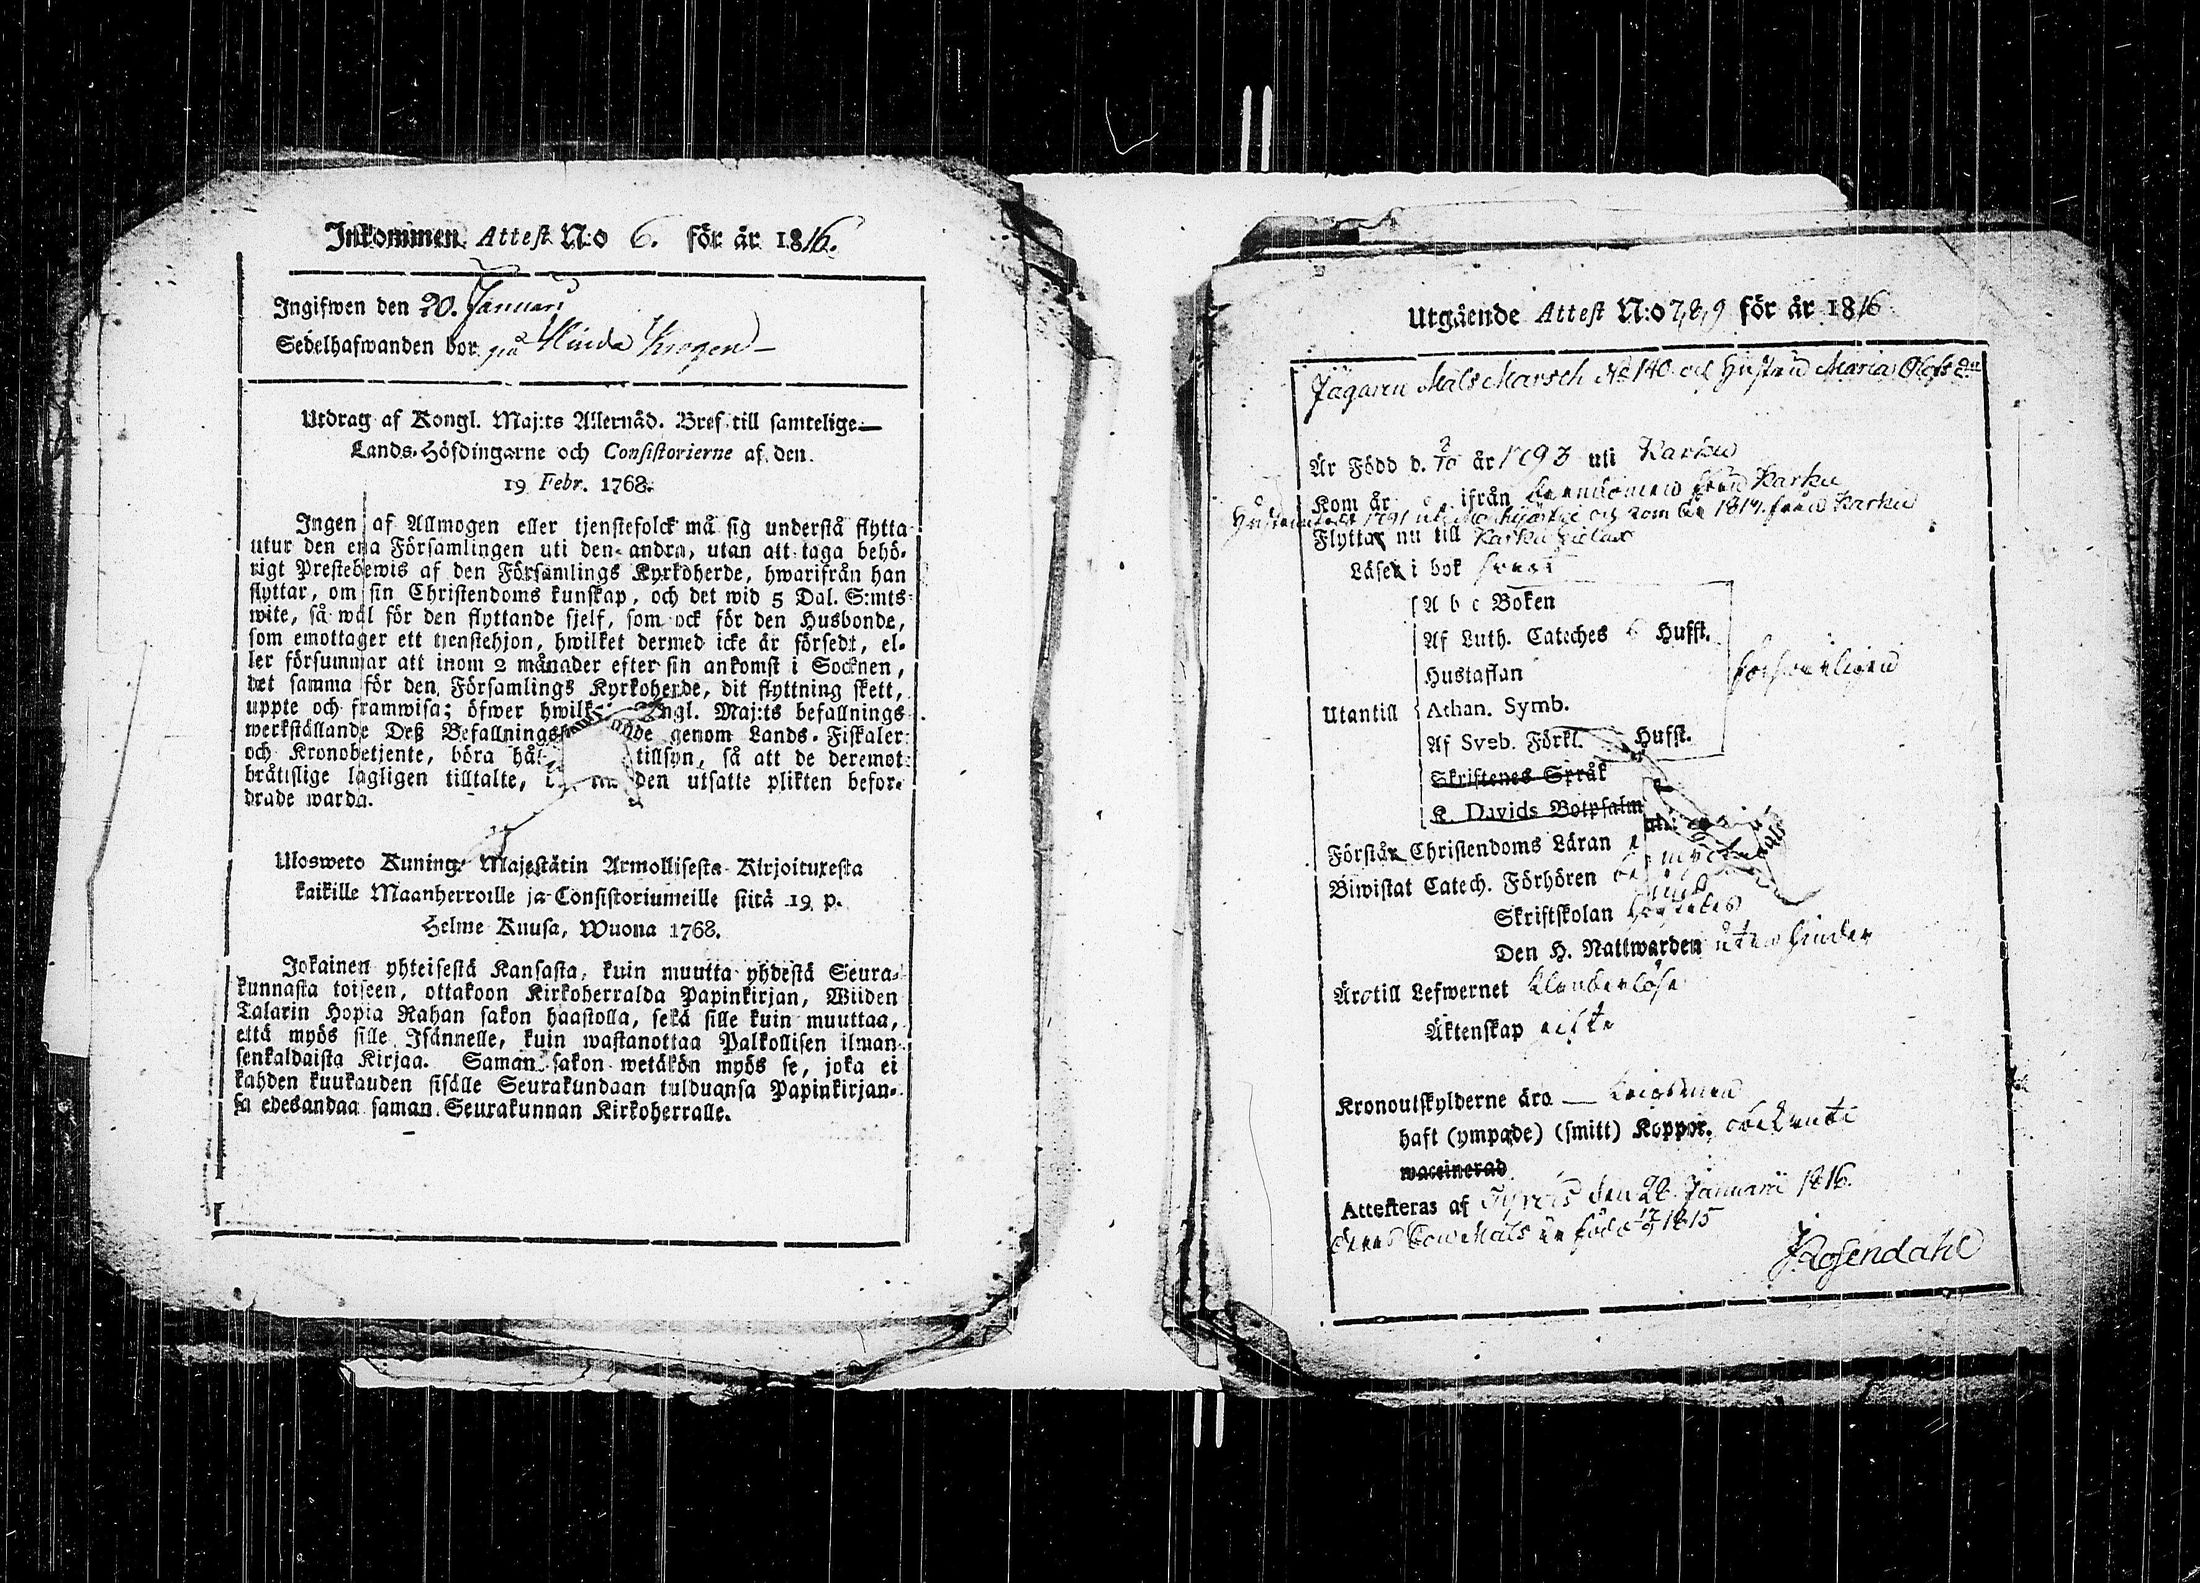 Inkommen Attest N:o 6. för år 1816.
Ingifwen den 20. Januari
Sedelhafwanden bor på Hinda Krogen
Utdrag af Kongl. Maj:ts Allernåd. Bref till samtelige
Lands-Höfdingarne och Consistorierne af den
19 Febr. 1768.
Ingen af Allmogen eller tjenstefolck må sig understå flytta
utur den ena Församlingen uti den andra, utan att taga behö-
rigt Prestebewis af den Församlings Kyrkoherde, hwarifrån han
flyttar, om sin Christendoms kunskap, och det wid 5 Dal. S:mts
wite, så wäl för den flyttande sjelf, som ock för den Husbonde,
som emottager ett tjenstehjon, hwilket dermed icke är försedt, el-
ler försummar att inom 2 månader efter sin ankomst i Socknen,
det samma för den Församlings Kyrkoherde, dit flyttning skett,
uppte och framwisa; öfwer hwilket Kongl. Maj:ts befallnings
werkställande Deß Befallningshafwande genom Lands-Fiskaler
och Kronobetjente, böra hål tillsyn, så att de deremot
brättslige lagligen tilltalte, den utsatte plikten befor-
drade warda.
Ulosweto Kuning. Majestätin Armollisesta Kirjoituxesta
kaikille Maanherroille ja Consistoriumeille siitä 19 p.
Helme Kuusa, Wuona 1768.
Jokainen yhteisestä Kansasta, kuin muutta yhdestä Seura-
kunnasta toiseen, ottakoon Kirkoherralda Papinkirjan, Wiiden
Talarin Hopia Rahan sakon haastolla, sekä sille kuin muuttaa,
että myös sille Isännelle, kuin wastanottaa Palkollisen ilman
senkaldaista Kirjaa. Saman sakon wetäkön myös se, joka ei
kahden kuukauden sisälle Seurakundaan tulduansa Papinkirjan-
sa edesandaa saman Seurakunnan Kirkoherralle.
Utgående Attest N:o 7,8,9 för år 1816
Jägaren Mats Marsch No 140 och Hustru Maria Olofs dr
Är Född d. 2/10 år 1793 uti Karku
Kom år ifrån från Karku
Hustrun född 1791 uti och kom år 1814 från Karku
Flyttar nu till Karku
Läser i bok
A b c Boken
Af Luth. Cateches Hufst.
Hustaflan
försvarligen
Utantill Athan. Symb.
Af Sveb. Förkl. Hufst.
Skriftenes Språk
K. Davids Botpsalm
Förstår Christendoms Läran
Biwistat Catech. Förhören
Skriftskolan
Den H. Nattwarden utan hinder
Äro till Lefwernet klanderlöse
Äktenskap ägta
Kronoutskylderne äro
haft (ympade) (smitt) Koppor. obekante
waccinerad
Attesteras af Tyrvis den 26 Januarii 1816.
deras Son Mats är född 1815
J Rosendahl